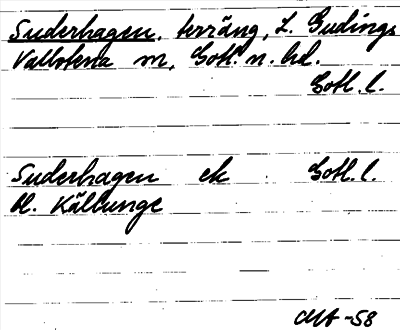 Suderhagen, terräng, L. Gudings
Vallstena m, Gotl. n. hd.
Gotl. l.
Suderhagen ek Gotl. l.
bl. Källunge
-58